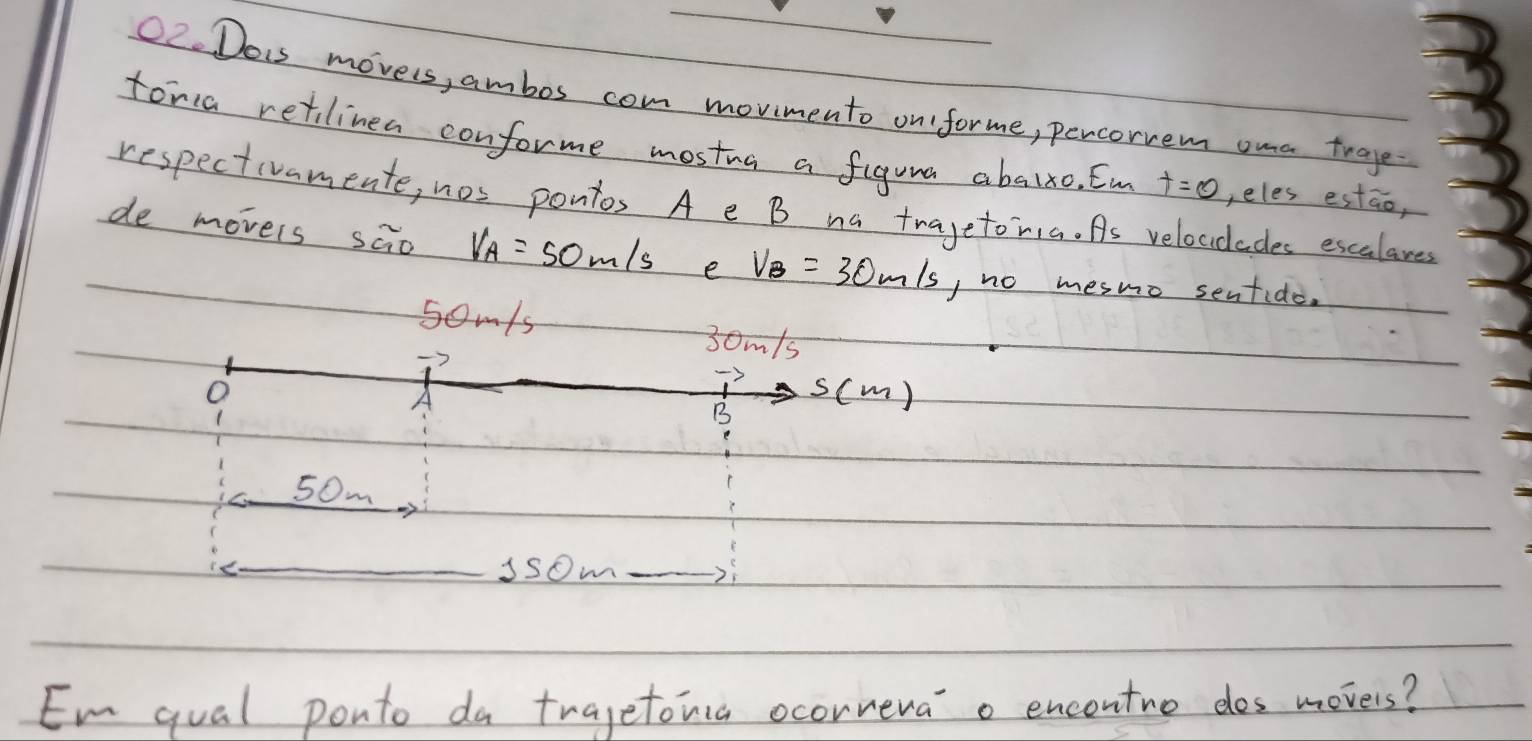 02. Dois móveis, ambos com movimento uniforme, percorrem uma traje-
tória retilínea conforme mostra a figura abaixo. Em t=0, eles estão,
respectivamente, nos pontos A e B na trajetória. As velocidades escalares
de móveis são VA = 50m/s e VB = 30m/s, no mesmo sentido.
50m/s
30m/s
O A B S(m)
50m
150m
Em qual ponto da trajetória ocorrerá o encontro dos móveis?